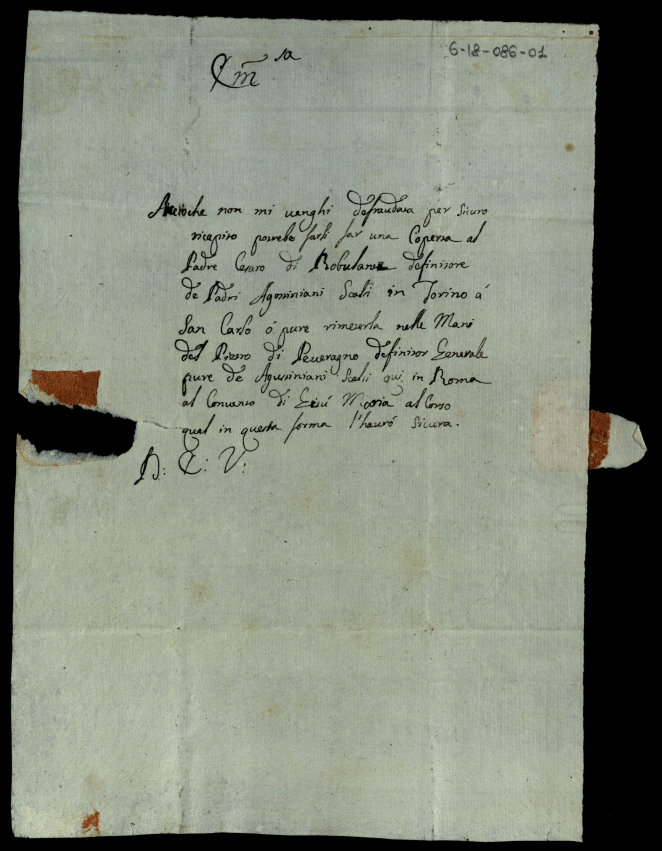 6-18-086-01
Accioche non mi venghi defraudata per sicuro
ricapito potrebe farli far una Coperta al
Padre Cesaro di Robulant definitore
de Padri Agostiniani Scalsi in Torino à
San Carlo ò pure rimeterla nelle Mani
del Pietro di Peveragno definitor Generale
pure de Agustiniani Scalsi qui in Roma
al Convento di Giesù Maria al Corso
qual in questa forma l'haurò sicura.